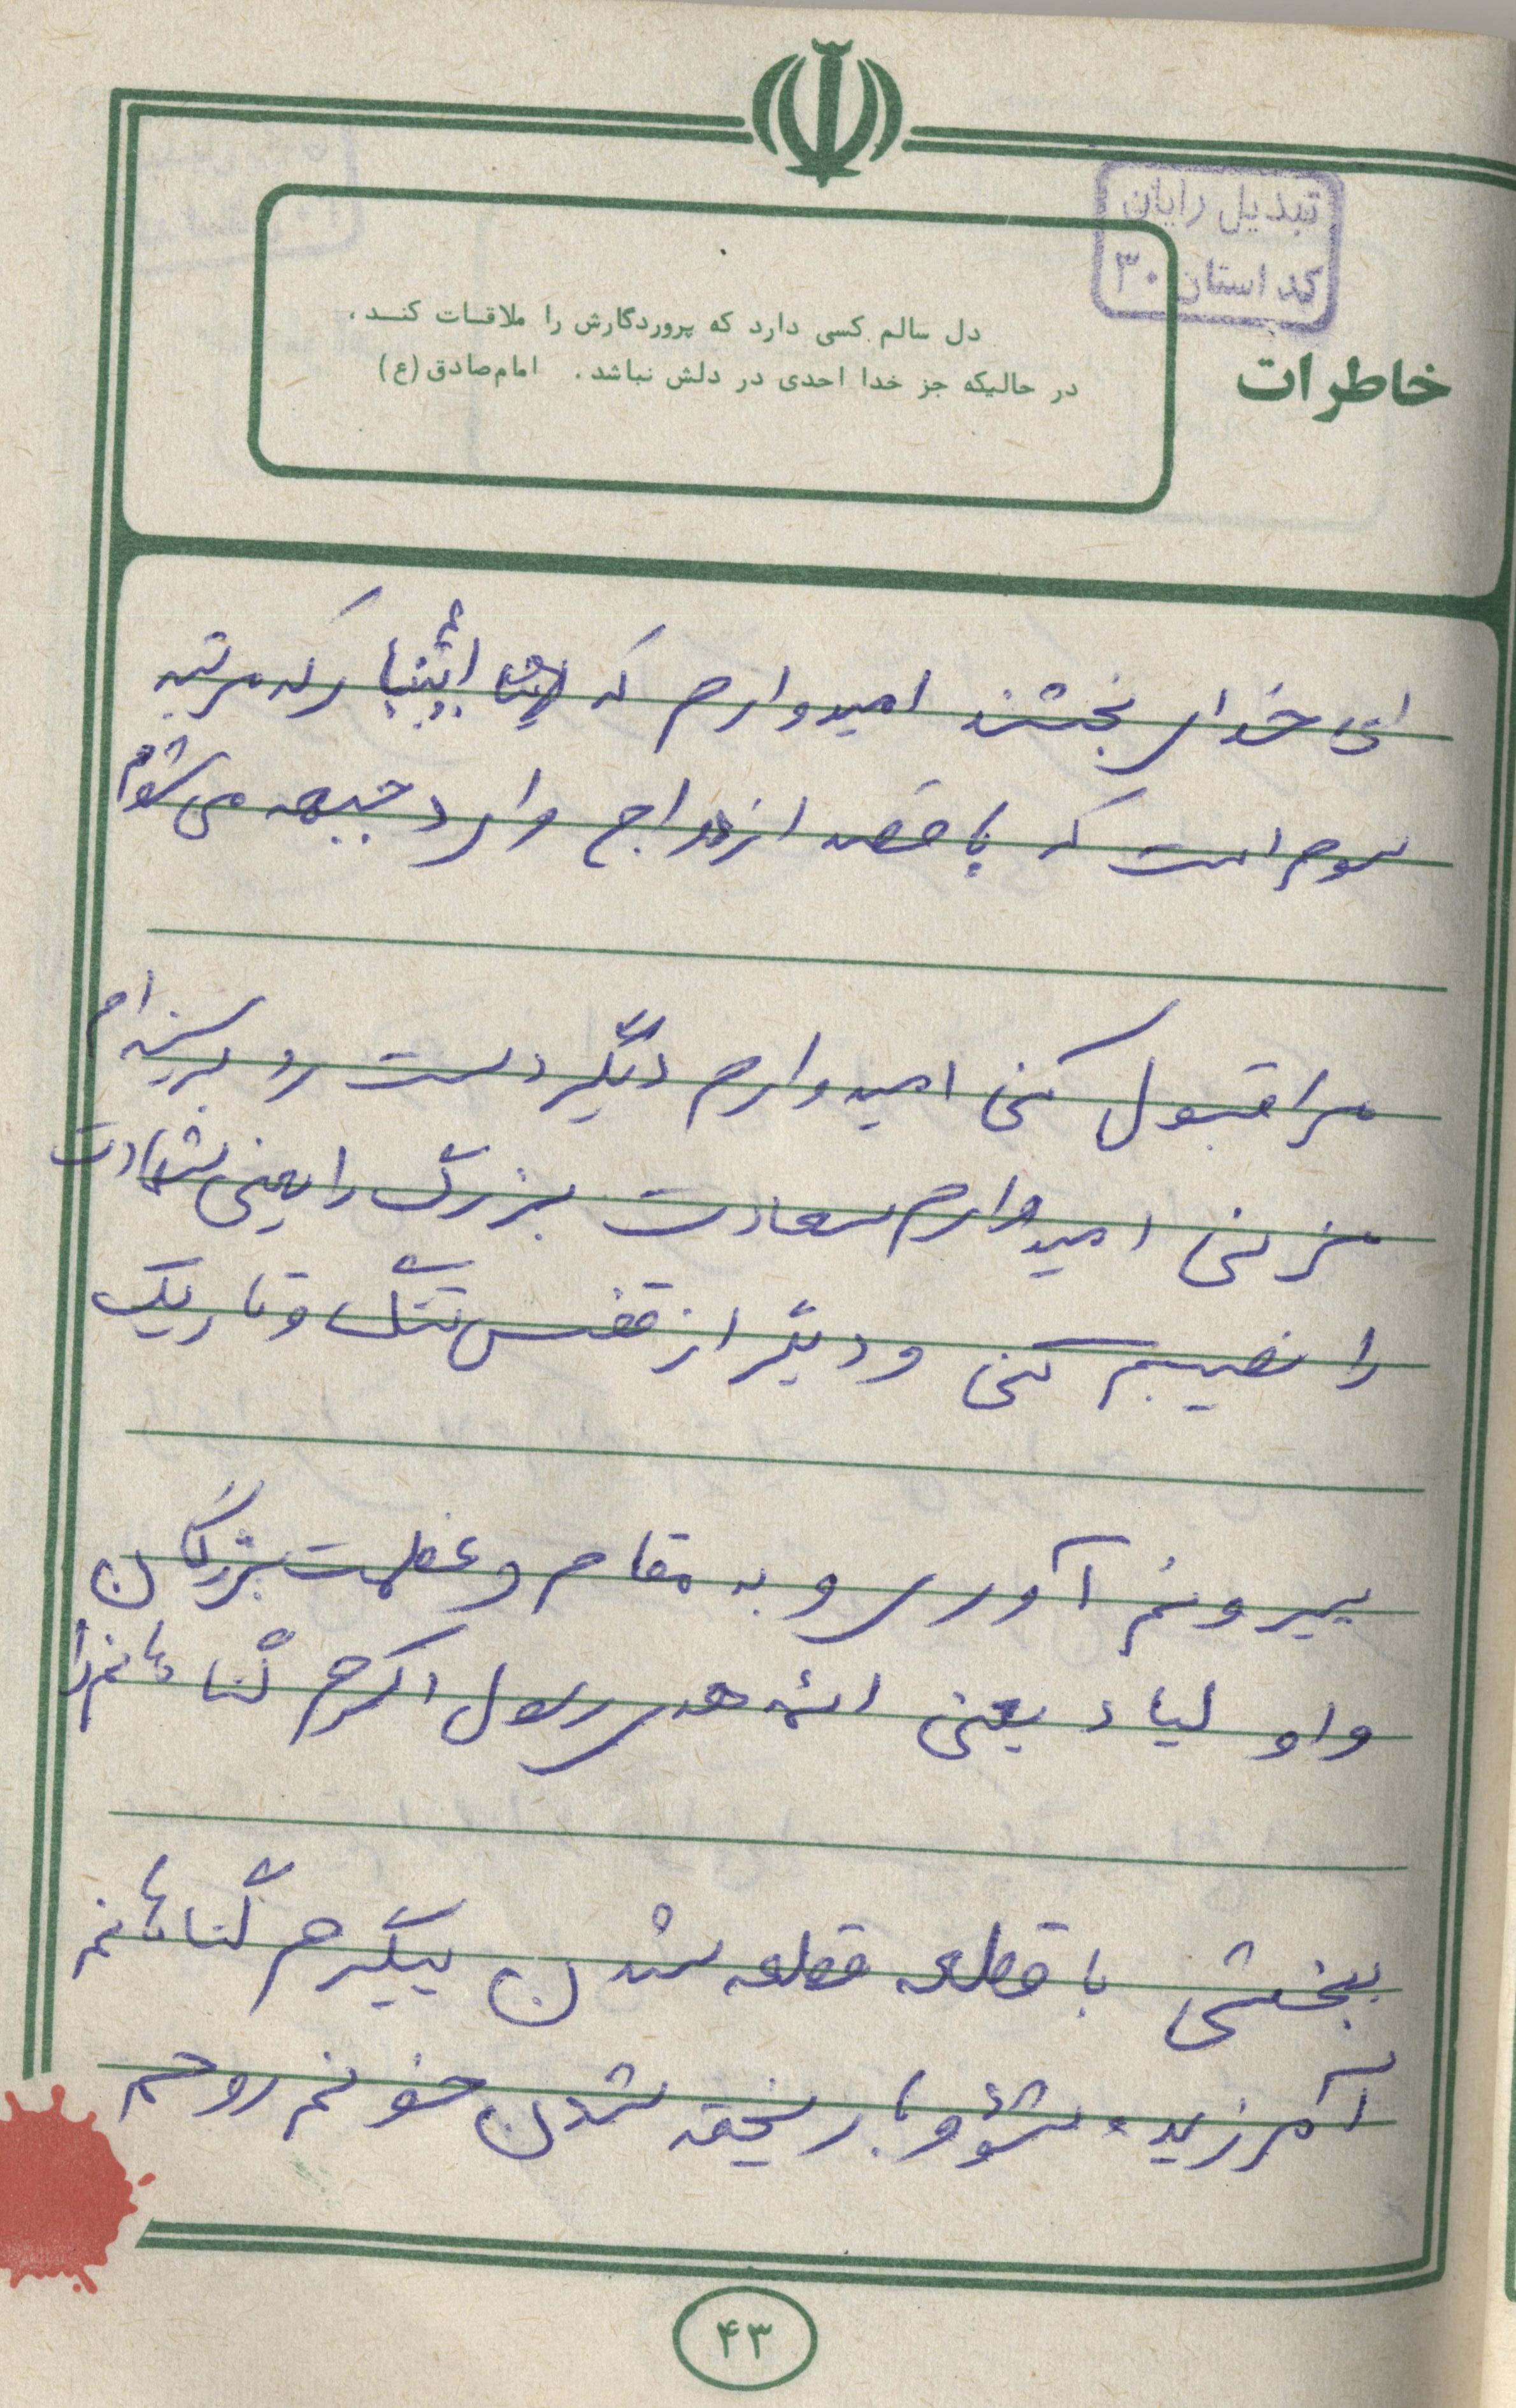 تبدیل رایان
کد استان ۳۰
خاطرات
دل سالم کسی دارد که پروردگارش را ملاقات کند،
در حالیکه جز خدا احدی در دلش نباشد. امام صادق (ع)
ای خدای بخشنده امیدوارم که اینبار که مرتبه
سوم است که با قصد ازدواج وارد جبهه می‌شوم
مرا قبول کنی امیدوارم دیگر دست رد بر سینه‌ام
نزنی امیدوارم سعادت بزرگ را یعنی شهادت
را نصیبم کنی و دیگر از قفس تنگ و تاریک
بیرونم آوری و به مقام و عظمت بزرگان
و اولیاء یعنی ائمه هدی رسول اکرم گناهانم را
ببخشی با قطعه قطعه شدن پیکرم گناهانم
آمرزیده شود و با ریخته شدن خونم روحم
۴۳